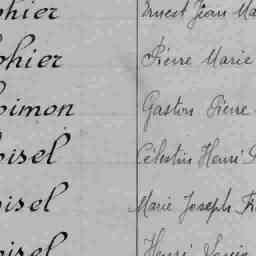 phier Ernest Jean Ma
phier Pierre Marie
oimon Gaston Pierre
oisel Célestin Henri
oisel Marie Joseph Fr
oisel Henri Louis